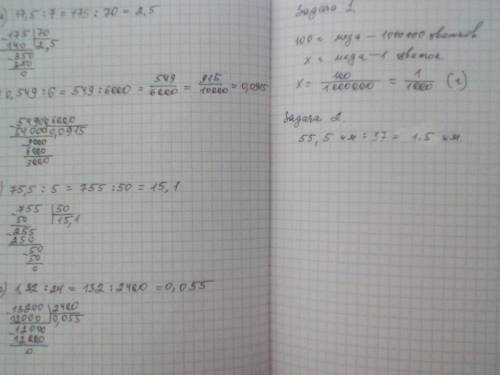 ) 17,5 : 7 = 175 : 70 = 2,5
-175 |70
140 |2,5
-350
350
0
) 0,549 : 6 = 549 : 6000 = 549/6000 = 915/10000 = 0,0915
54000 |0,0915
3000
) 75,5 : 5 = 755 : 50 = 15,1
-755 |50
50 |15,1
-255
250
-50
50
0
: 24 = 132 : 2400 = 0,055
-13200 |2400
12000 |0,055
-12000
12000
0
Задача 1
100 г меда - 1000000 цветков
x г меда - 1 цветок
x = 100/1000000 = 1/1000 (г)
Задача 2
55,5 км : 37 = 1.5 км